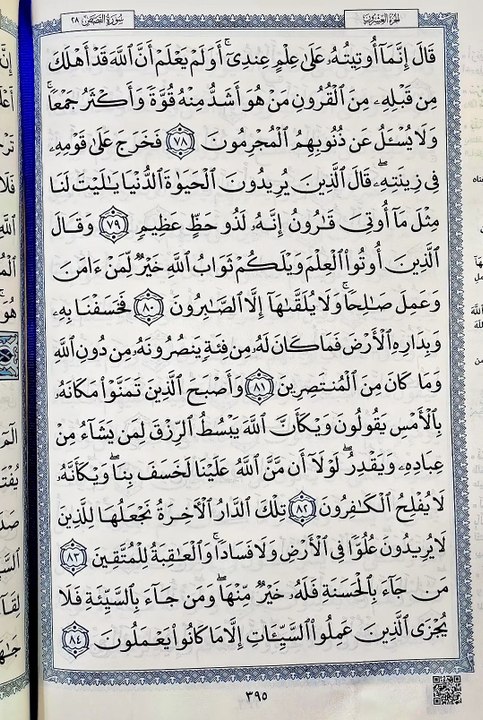 الجزء العشرون
سورة القصص ٢٨
قَالَ إِنَّمَآ أُوتِيتُهُۥ عَلَىٰ عِلْمٍ عِندِىٓۚ أَوَلَمْ يَعْلَمْ أَنَّ ٱللَّهَ قَدْ أَهْلَكَ
مِن قَبْلِهِۦ مِنَ ٱلْقُرُونِ مَنْ هُوَ أَشَدُّ مِنْهُ قُوَّةً وَأَكْثَرُ جَمْعًاۚ
وَلَا يُسْـَٔلُ عَن ذُنُوبِهِمُ ٱلْمُجْرِمُونَ ٧٨ فَخَرَجَ عَلَىٰ قَوْمِهِۦ
فِى زِينَتِهِۦۖ قَالَ ٱلَّذِينَ يُرِيدُونَ ٱلْحَيَوٰةَ ٱلدُّنْيَا يَـٰلَيْتَ لَنَا
مِثْلَ مَآ أُوتِىَ قَـٰرُونُ إِنَّهُۥ لَذُو حَظٍّ عَظِيمٍ ٧٩ وَقَالَ
ٱلَّذِينَ أُوتُوا۟ ٱلْعِلْمَ وَيْلَكُمْ ثَوَابُ ٱللَّهِ خَيْرٌ لِّمَنْ ءَامَنَ
وَعَمِلَ صَـٰلِحًاۚ وَلَا يُلَقَّىٰهَآ إِلَّا ٱلصَّـٰبِرُونَ ٨٠ فَخَسَفْنَا بِهِۦ
وَبِدَارِهِ ٱلْأَرْضَ فَمَا كَانَ لَهُۥ مِن فِئَةٍ يَنصُرُونَهُۥ مِن دُونِ ٱللَّهِ
وَمَا كَانَ مِنَ ٱلْمُنتَصِرِينَ ٨١ وَأَصْبَحَ ٱلَّذِينَ تَمَنَّوْا۟ مَكَانَهُۥ
بِٱلْأَمْسِ يَقُولُونَ وَيْكَأَنَّ ٱللَّهَ يَبْسُطُ ٱلرِّزْقَ لِمَن يَشَآءُ مِنْ
عِبَادِهِۦ وَيَقْدِرُۖ لَوْلَآ أَن مَّنَّ ٱللَّهُ عَلَيْنَا لَخَسَفَ بِنَاۖ وَيْكَأَنَّهُۥ
لَا يُفْلِحُ ٱلْكَـٰفِرُونَ ٨٢ تِلْكَ ٱلدَّارُ ٱلْـَٔاخِرَةُ نَجْعَلُهَا لِلَّذِينَ
لَا يُرِيدُونَ عُلُوًّا فِى ٱلْأَرْضِ وَلَا فَسَادًاۚ وَٱلْعَـٰقِبَةُ لِلْمُتَّقِينَ ٨٣
مَن جَآءَ بِٱلْحَسَنَةِ فَلَهُۥ خَيْرٌ مِّنْهَاۖ وَمَن جَآءَ بِٱلسَّيِّئَةِ فَلَا
يُجْزَى ٱلَّذِينَ عَمِلُوا۟ ٱلسَّيِّـَٔاتِ إِلَّا مَا كَانُوا۟ يَعْمَلُونَ ٨٤
٣٩٥